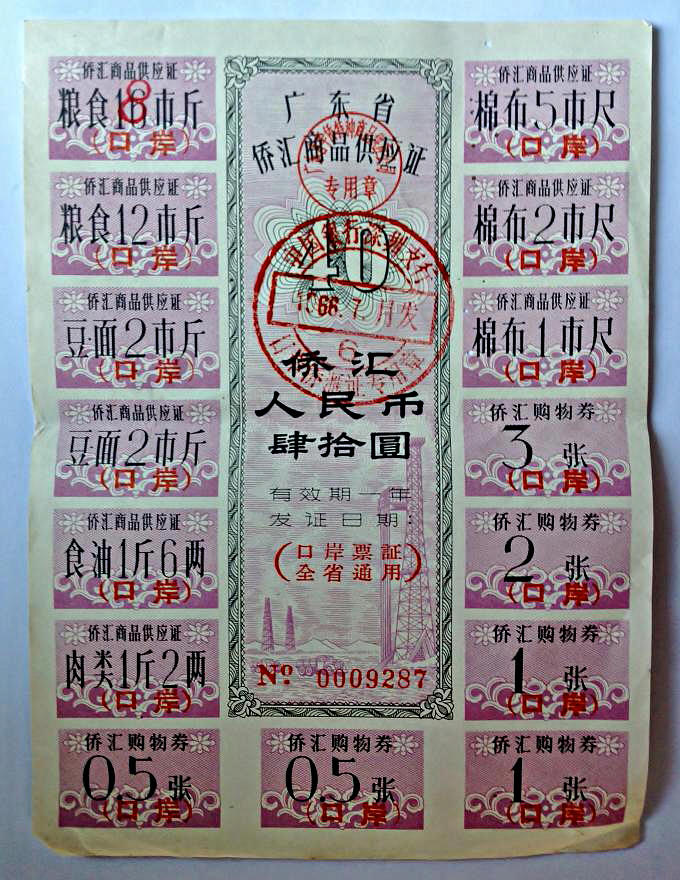 侨汇商品供应证
粮食18市斤
8
(口岸)
侨汇商品供应证
粮食12市斤
(口岸)
侨汇商品供应证
豆面2市斤
(口岸)
侨汇商品供应证
豆面2市斤
(口岸)
侨汇商品供应证
食油1斤6两
(口岸)
侨汇商品供应证
肉类1斤2两
(口岸)
侨汇购物券
0.5张
(口岸)
广东省
侨汇商品供应证
专用章
40
中国银行深圳支行
66.7.月发
6
侨汇
人民币
肆拾圆
有效期一年
发证日期:
(口岸票証
全省通用)
No. 0009287
侨汇购物券
0.5张
(口岸)
侨汇商品供应证
棉布5市尺
(口岸)
侨汇商品供应证
棉布2市尺
(口岸)
侨汇商品供应证
棉布1市尺
(口岸)
侨汇购物券
3张
(口岸)
侨汇购物券
2张
(口岸)
侨汇购物券
1张
(口岸)
侨汇购物券
1张
(口岸)